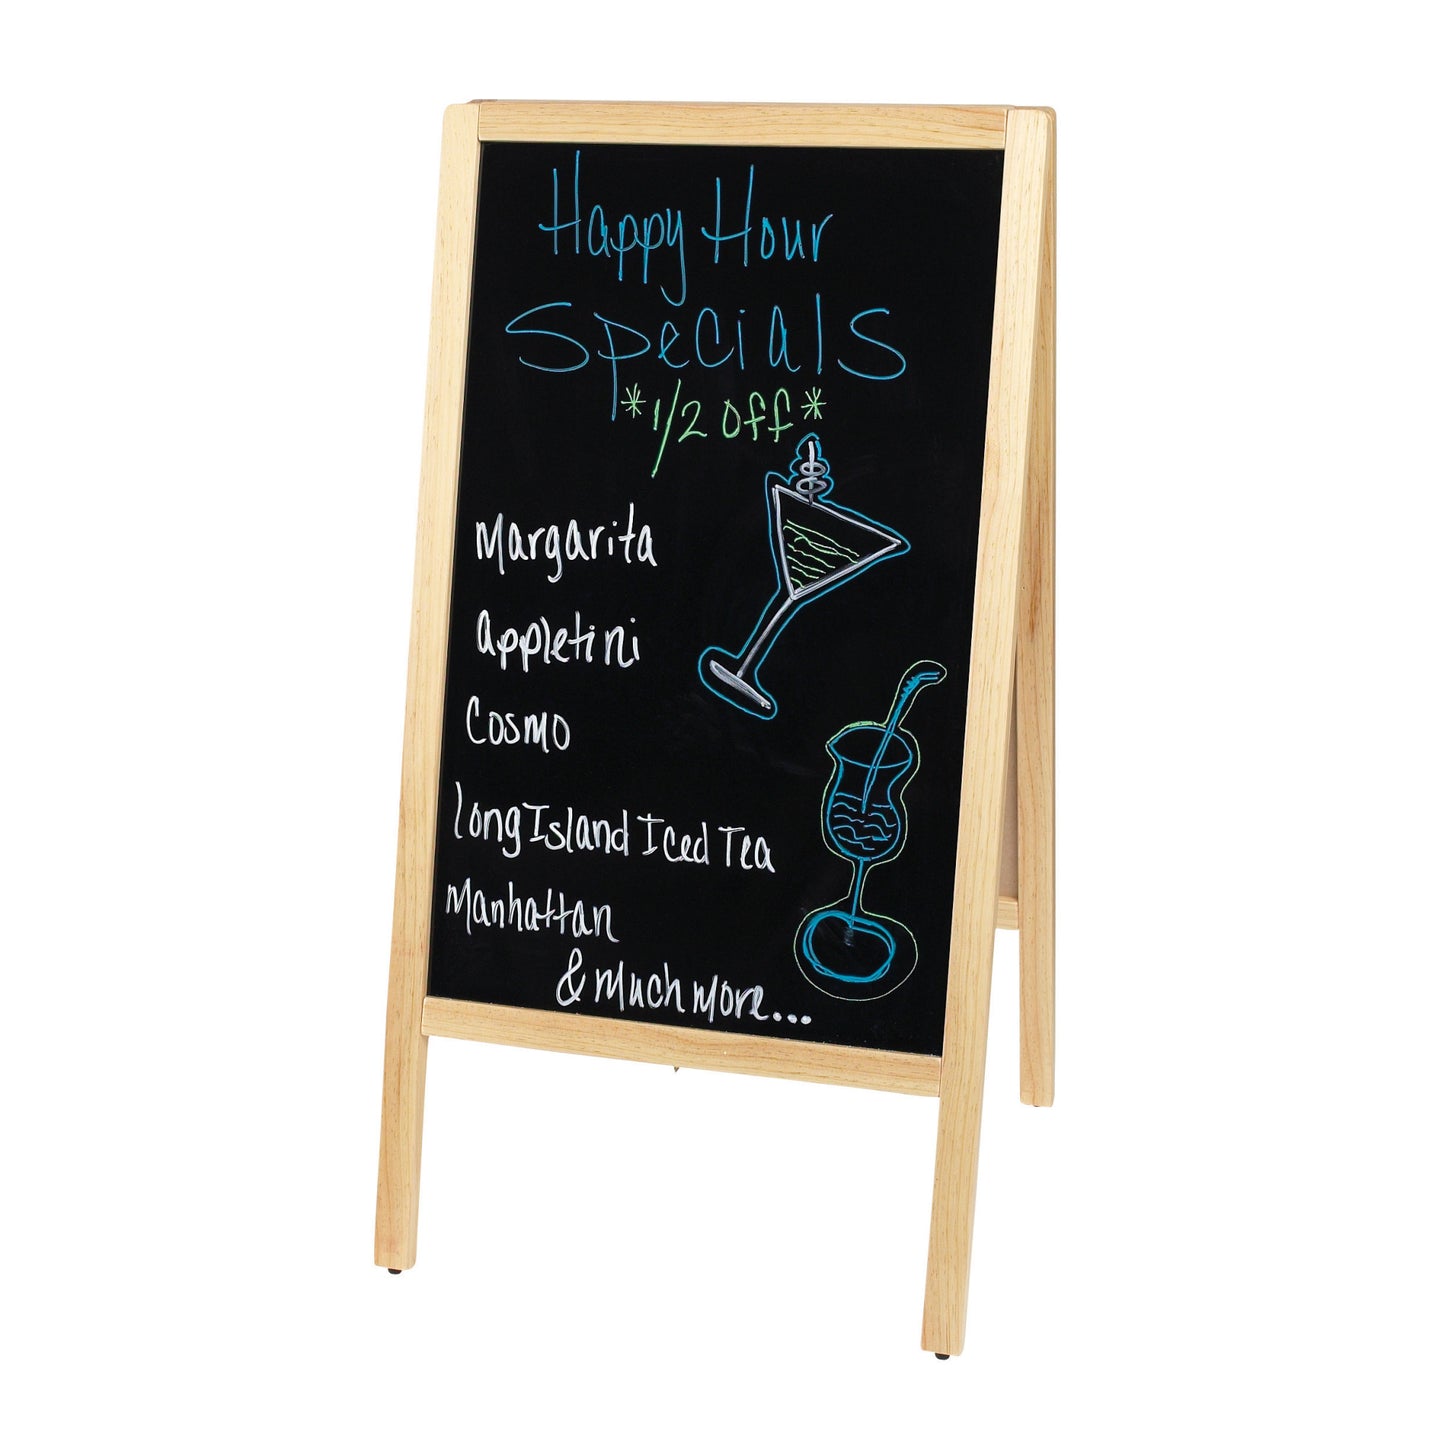 Happy Hour
Specials
*1/2 off*
Margarita
Appletini
Cosmo
Long Island Iced Tea
Manhattan
& Much More...